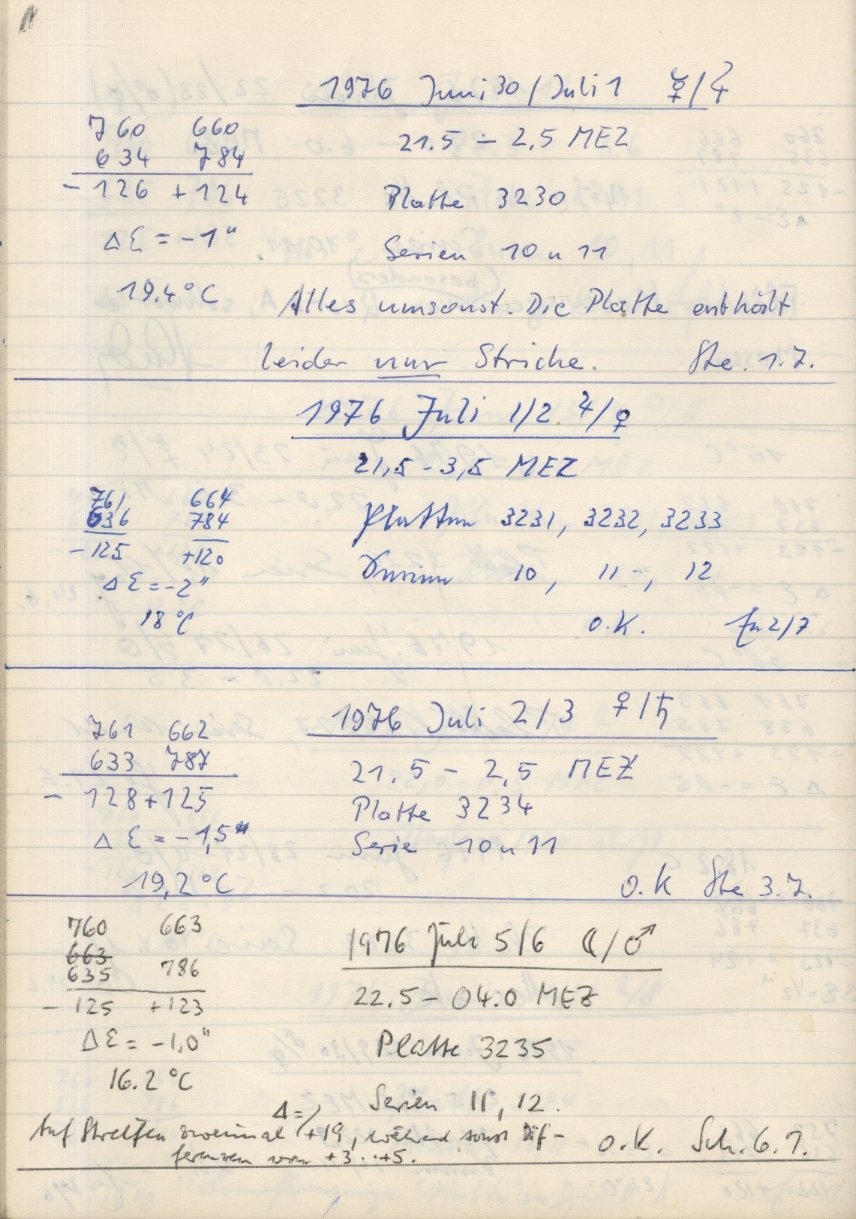 1976 Juni 30/Juli 1 ☿/♃
760 660
634 784
- 126 + 124
21.5 – 2.5 MEZ
Platte 3230
ΔΣ = -1"
Serien 10 u 11
19.4°C
Alles umsonst. Die Platte enthält
leider nur Striche. Ste. 1.7.
1976 Juli 1/2 ♃/♀
21,5 - 3,5 MEZ
761 664
636 784
- 125 +120
Platten 3231, 3232, 3233
Serien 10, 11, 12
ΔΣ = -2"
18°C
o.K. 2/7
1976 Juli 2/3 ♀/♄
761 662
633 787
- 128 +125
21.5 – 2,5 MEZ
Platte 3234
ΔΣ = -1,5"
Serie 10 u 11
19,2°C
o.K Ste 3.7.
1976 Juli 5/6 ☾/♂
760 663
663
635 786
- 125 +123
22.5 – 04.0 MEZ
ΔΣ = -1,0"
Platte 3235
16.2°C
Serien 11, 12.
Δ =
Auf Streifen zweimal +19, während sonst Dif-
ferenzen von +3 ·· +5.
o.K. Sch. 6.7.